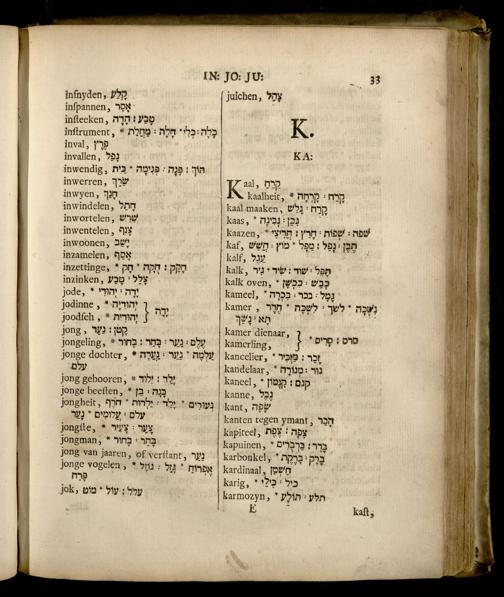 IN: JO: JU:
33
insnyden, קָלַע
inspannen, אָסַר
insteeken, טָבַע : הָדָה
instrument, * כָּלָה : כְּלִי * חָלָה : מַחֲלַת
inval, פָּרַץ
invallen, נָפַל
inwendig, תּוֹךְ : פָּנָה : פְּנִימָה * בַּיִת
inwerren, שָׂרַךְ
inwyen, חָנַךְ
inwindelen, חָתַל
inwortelen, שָׁרַשׁ
inwentelen, צָנַף
inwoonen, יָשַׁב
inzamelen, אָסַף
inzettinge, * חָקַק : חֻקָּה * חֹק
inzinken, צָלַל * טָבַע
jode, * יָדָה : יְהוּדִי
jodinne, * יְהוּדִיָּה
joodsch, * יְהוּדִית } יָדָה
jong, קָטֹן : נַעַר
jongeling, * עֶלֶם : נַעַר : בָּחַר : בָּחוּר
jonge dochter, * עַלְמָה * נַעַר : נַעֲרָה
עלם
jong gebooren, * יָלַד : יִלּוֹד
jonge beesten, * בָּנָה : בֵּן
jongheit, נְעוּרִים * יָלַד : יַלְדוּת * חֹרֶף
עלם : עֲלוּמִים * נַעַר
jongste, * צָעַר : צָעִיר
jongman, * בָּחַר : בָּחוּר
jong van jaaren, of verstant, נַעַר
jonge vogelen, * אֶפְרוֹחַ * גָּזַל : גּוֹזָל
פָּרַח
jok, עלל : עוֹל * מוֹט
juichen, צָהַל
K.
KA:
Kaal, קֵרֵחַ
kaalheit, * קָרַח : קָרְחָה
kaal maaken, קָרַח : גָּלַשׁ
kaas, * גָּבַן : גְּבִינָה
kaazen, * שפה : שְׁפוֹת : חָרַץ : חֲרִיצֵי
kaf, תֶּבֶן : נָפַל : מַפָּל * מוֹץ : חֲשַׁשׁ
kalf, עֵגֶל
kalk, תָּפֵל * שׂוּד : שִׂיד * גִּיר
kalk oven, * כָּבַשׁ : כִּבְשָׁן
kameel, * גָּמָל * בכר : בִּכְרָה
kamer, נִשְׁכָּה * לשך : לִשְׁכָּה * חֶדֶר
תָּא * נָשַׁךְ
kamer dienaar,
kamerling, } * סרס : סָרִיס
kancelier, * זָכַר : מַזְכִּיר
kandelaar, * נור : מְנוֹרָה
kaneel, * קנם : קִנָּמוֹן
kanne, נֵבֶל
kant, שָׂפָה
kanten tegen ymant, הָכַר
kapiteel, * צָפָה : צֶפֶת
kapuinen, * בָּרַר : בַּרְבֻּרִים
karbonkel, * בָּרַק : בָּרֶקֶת
kardinaal, חַשְׁמַן
karig, * כיל : כִּילַי
karmozyn, * תלע : תּוֹלָע
E
kast,